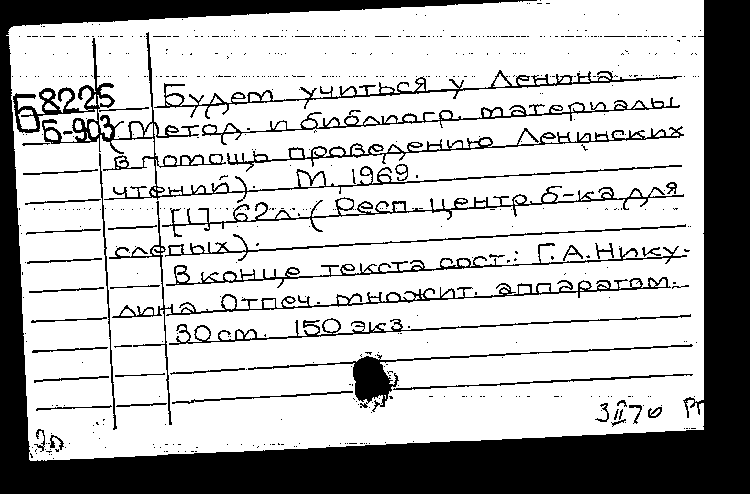 Б8225 Будем учиться у Ленина.
Б-903 (Метод. и библиогр. материалы
в помощь проведению Ленинских
чтений). М., 1969.
[1], 62 л. (Респ. центр. б-ка для
слепых).
В конце текста сост.: Г.А. Нику-
лина. Отпеч. множит. аппаратом.
30 см. 150 экз.
3 II 70 РГ
20